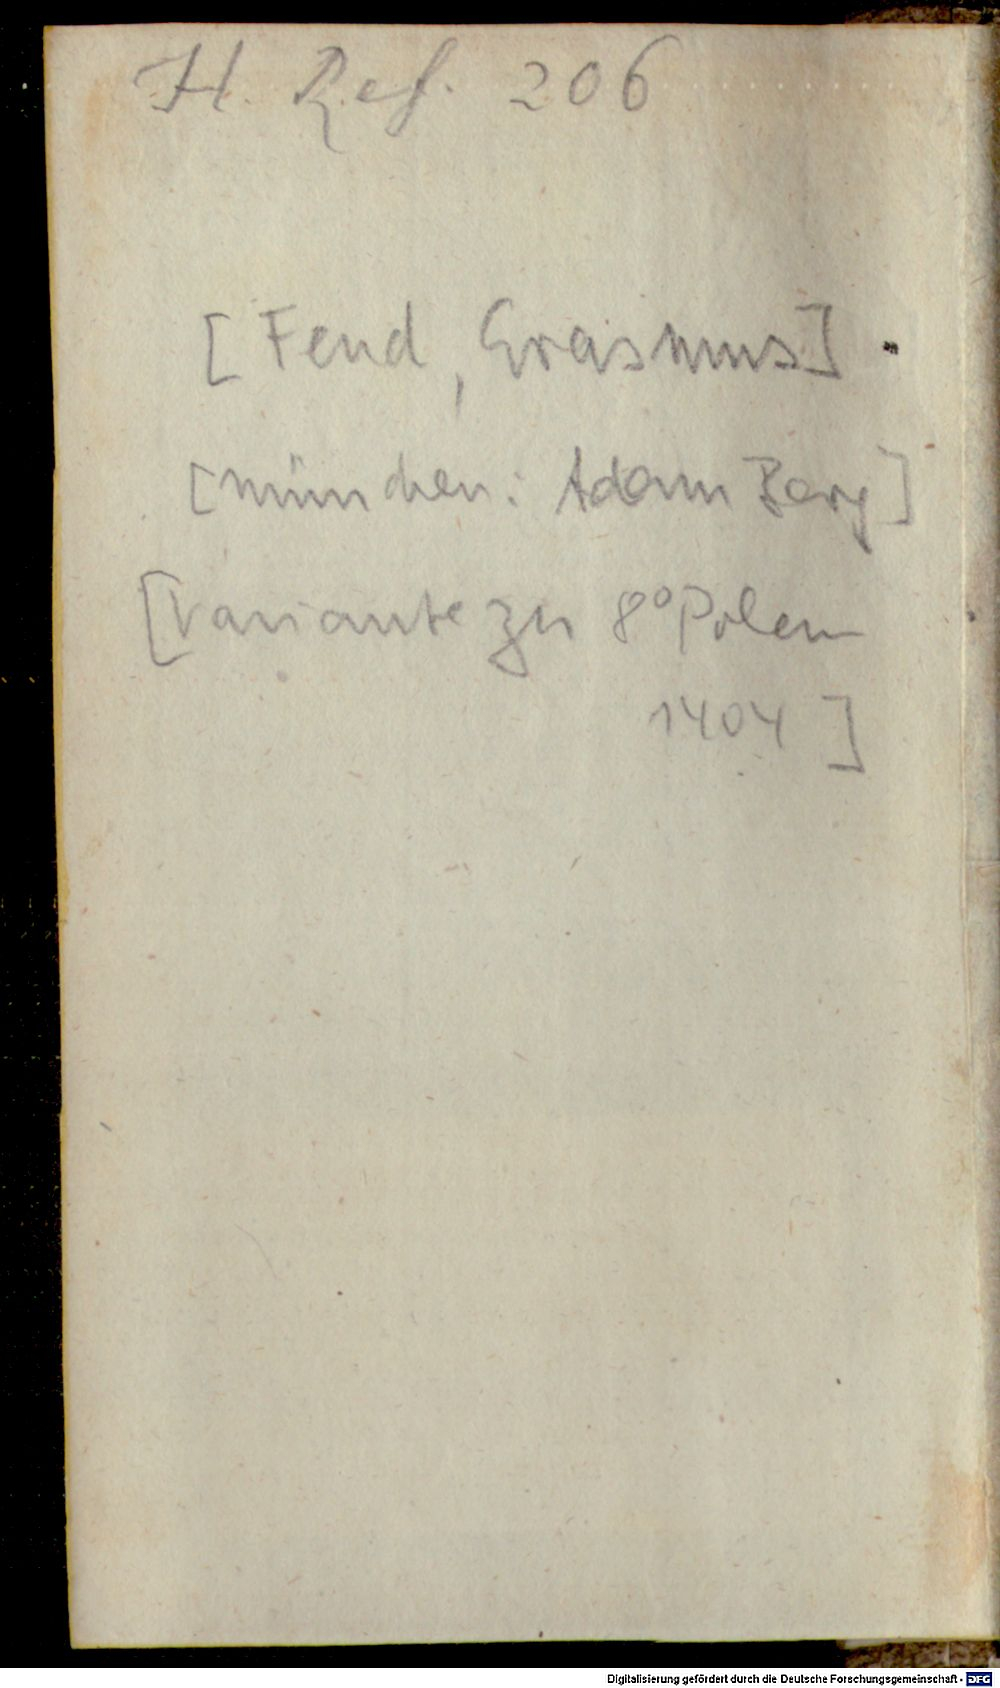 H. Ref. 206
[Fend, Erasmus]
[München: Adam Berg]
[Variante zu 8° Polem
1404]
Digitalisierung gefördert durch die Deutsche Forschungsgemeinschaft - DFG